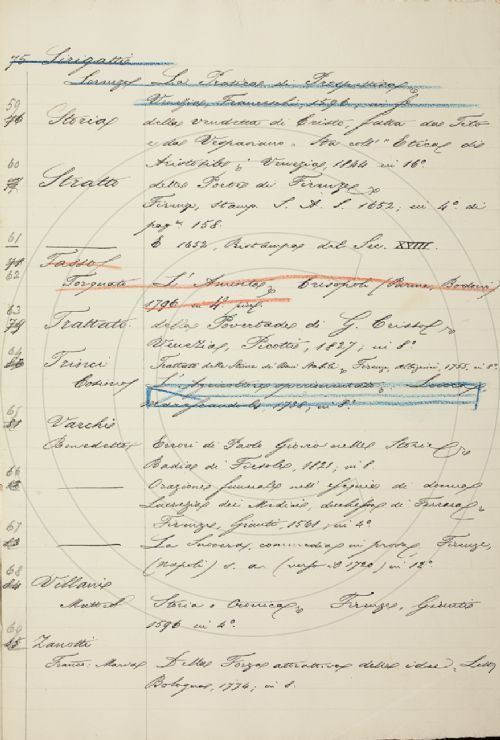 75 Sirigatti
Lorenzo La Pratica di Prospettiva
Venezia, Franceschi, 1596, in f.
59
76 Storia della vendetta di Cristo fatta da Tito
e da Vespasiano. Sta coll' Etica di
60 Aristotile; Venezia, 1844 in 16º
77 Stratto delle Porte di Firenze
Firenze, stamp. S. A. S. 1652, in 4º di
pagˢ 158.
61 —— E 1652, Ristampa del Sec. XVIII.
78 Tasso
62 Torquato L'Aminta, Crisopoli (Parma, Bodoni,
1796 in 4º picc.
63
79 Trattato della Povertade di G. Cristo,
Venezia, Picotti, 1827, in 8º
64
Trinci Trattato delle Stime di Beni Stabili, Firenze, 1755, in 8º
Cosimo L'Agricoltore sperimentato, Lucca,
1726, in 8º
65
81 Varchi
Benedetto Errori di Paolo Giovio nelle Storie,
66 Badia di Fiesole, 1821, in 8.
82 —— Orazione funerale nell' esequie di donna
Lucrezia dei Medici, duchessa di Ferrara,
67 Firenze, Giunti, 1561, in 4º
83 —— La Suocera, commedia in prosa, Firenze,
68 (Napoli) s. a. (verso il 1720) in 12º
84 Villani
Matteo Storia o Cronica, Firenze, Giunti
69 1596 in 4º.
85 Zanotti
Franc. Maria Della Forza attrattiva delle idee,
Bologna, 1774, in 8.